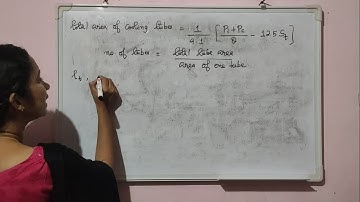 total area of cooling tubes = 1/9.1 [ Pi + Pc / θ - 12.5 St ]
no of tubes = total tube area / area of one tube
lt ,